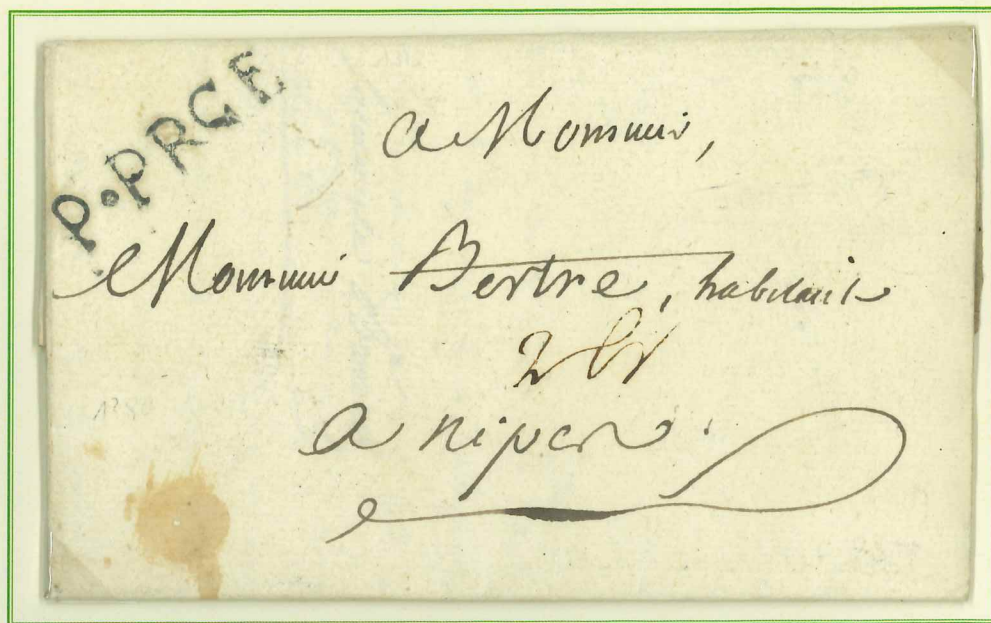 P.PRGE
a Monsieur,
Monsieur Bertre, habitant
a nipes.